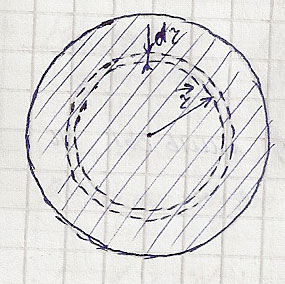 dr
r